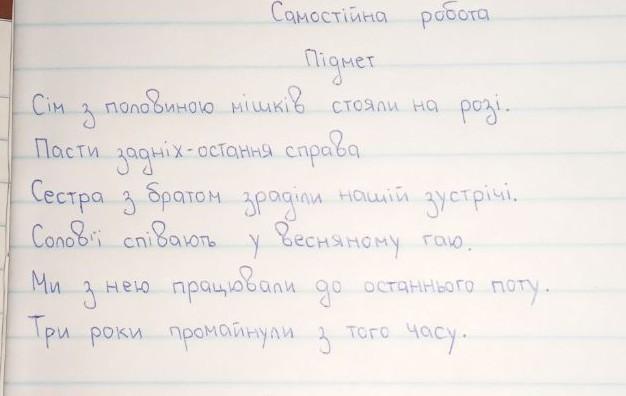 Самостійна робота
Підмет
Сім з половиною мішків стояли на розі.
Пасти задніх-остання справа
Сестра з братом зраділи нашій зустрічі.
Соловʼї співають у весняному гаю.
Ми з нею працювали до останнього поту.
Три роки промайнули з того часу.